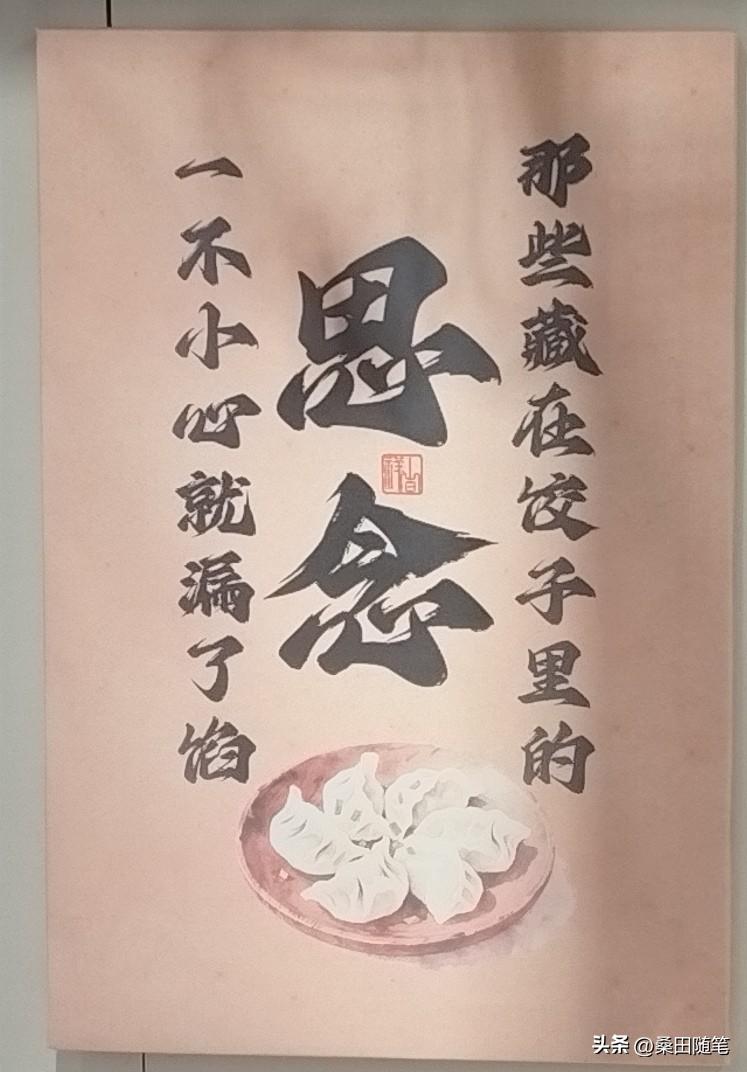 那些藏在饺子里的
思念
一不小心就漏了馅
头条 @桑田随笔